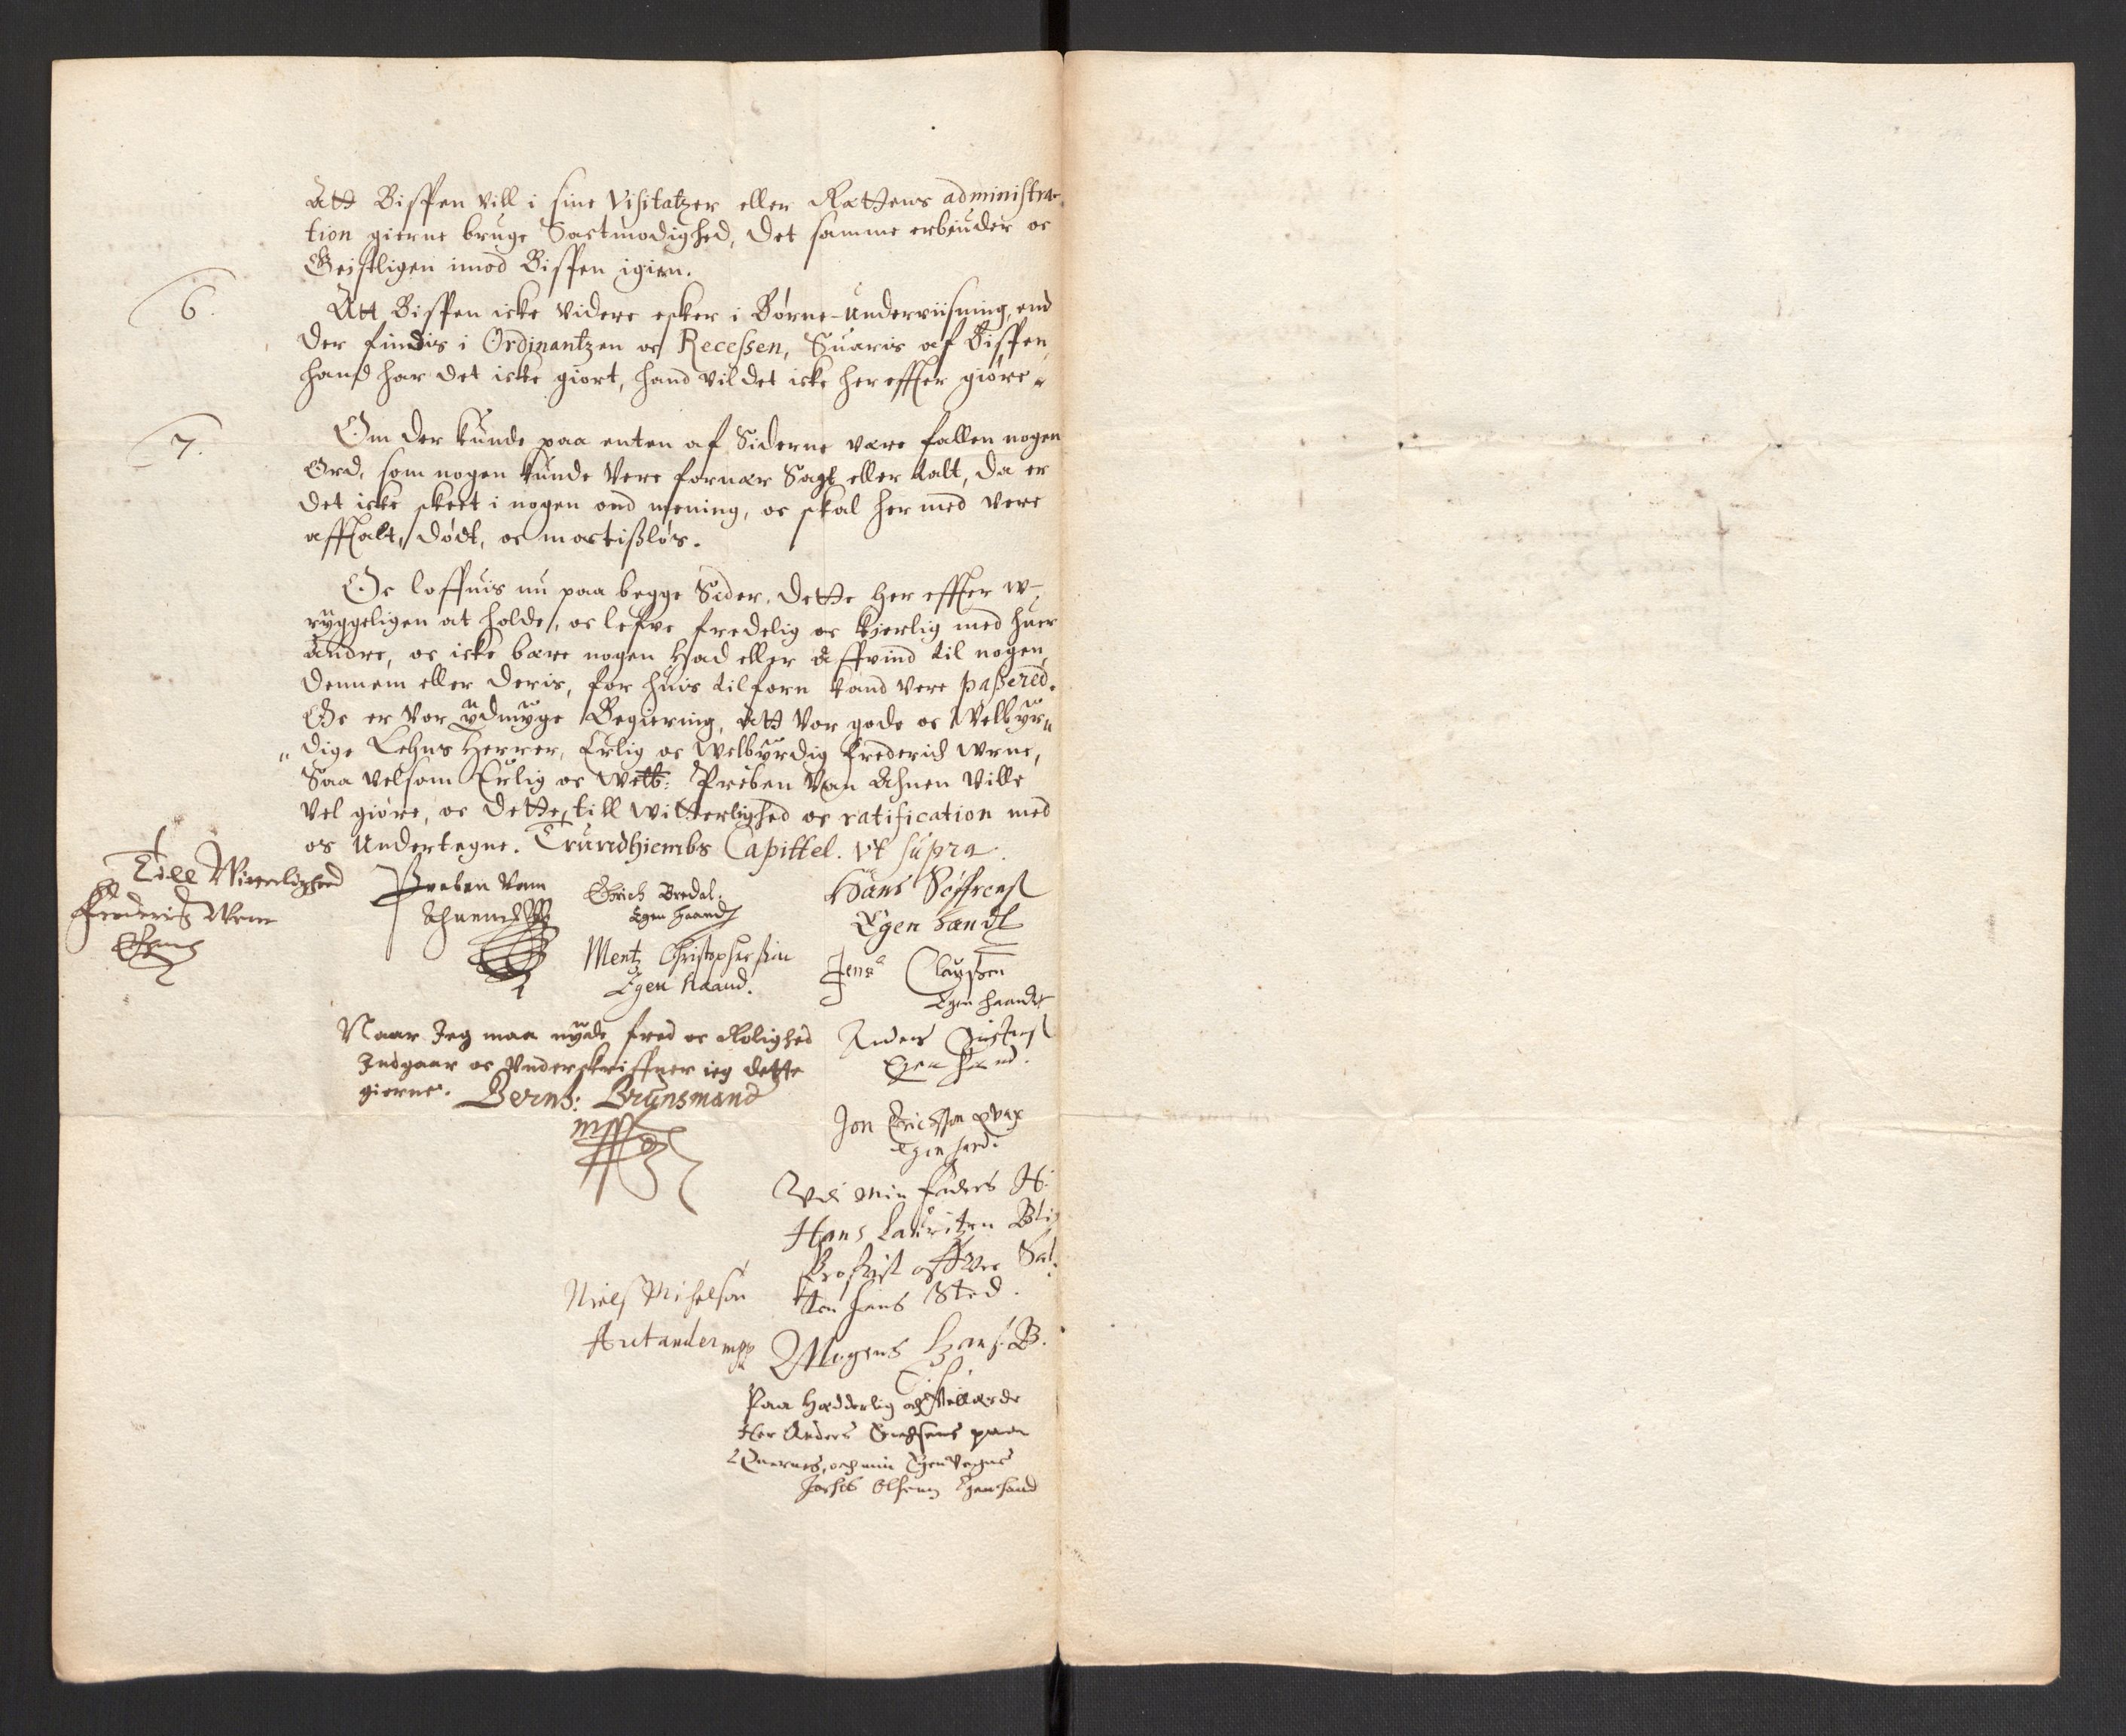 Att Bispen vill i sine Visitatzer eller Rettens administra-
tion gierne bruge Sactmodighed, det samme erbiuder oc
Geistligen imod Bispen igien.
6.
Att Bispen icke videre esker i Børne-underviisning, end
der findis i Ordinantzen oc Recessen, Suaris af Bispen,
hand har det icke giort, hand vil det icke her effter giøre
7.
Om der kunde paa enten af Siderne være fallen nogen
Ord, som nogen kunde Vere fornær Sagt eller talt, da er
det icke skeet i nogen ond mening, oc skal hermed vere
afftalt, dødt, oc mactisløs.
Oc loffuis nu paa begge Sider, dette her effter w-
ryggeligen at holde, oc lefve fredelig oc kierlig med huer
Andre, oc icke bære nogen Had eller Affvind til nogen
dennem eller deris, for huis tilforn kand vere passered.
Oc er Vor ydmyge Begiering, att Vor gode oc Welbyr-
dige Lehns Herrer, Erlig oc Welbyrdig Frederich Wrne,
Saa velsom Erlig oc Welb: Preben Van Ahnen Ville
Vel giøre, oc dette till Witterlighed oc ratification med
os Undertegne. Trundhiembs Capittel. Vt supra.
Till Witterlighed
Frederich Wrne
Preben Vann
Ahnen
Erich Bredal.
Egen haand
Mentz Christophersøn
Egen Haand.
Hans Søffrens
Egen Hand
Jens Claussen
Egen haand
Anders
Egen Hand.
Naar Jeg maa nyde fred oc Rolighed
Indgaar oc Underskriffuer ieg dette
gierne. Bernh: Brunsmand
mpp
Jon Erichsson
Egen hand.
Min faders H.
Hans Lauritzen Bli
Profvist offver Sal-
ten hans Sted.
Mogens Hans. B.
Niels Michelsøn
mpp
Paa Hædderlig och Vellærde
Her Anders paa
och min Egen Vegne
Jacob Olsenn Egen haand